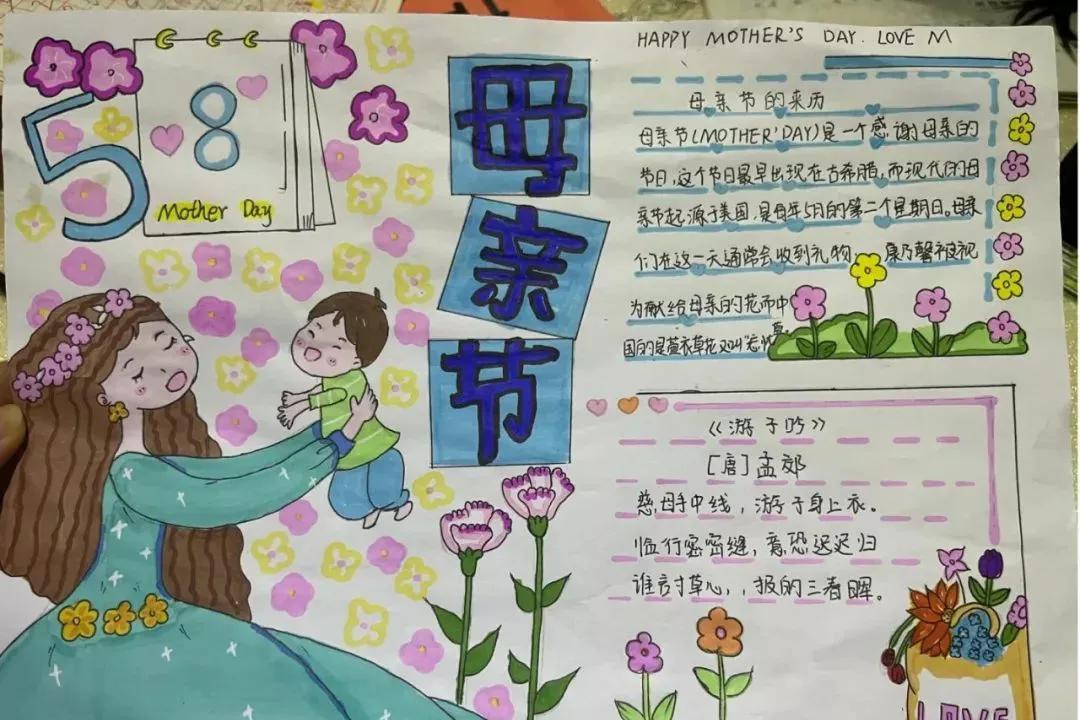 5 8
Mother Day
母
亲
节
HAPPY MOTHER'S DAY. LOVE M
母亲节的来历
母亲节(MOTHER'DAY)是一个感谢母亲的
节日,这个节日最早出现在古希腊,而现代的母
亲节起源于美国,是每年5月的第二个星期日。母亲
们在这一天通常会收到礼物 康乃馨被视
为献给母亲的花而中
国的是萱衣草花又叫忘忧草。
《游子吟》
[唐]孟郊
慈母手中线,游子身上衣。
临行密密缝,意恐迟迟归
谁言寸草心,,报的三春晖。
LOVE